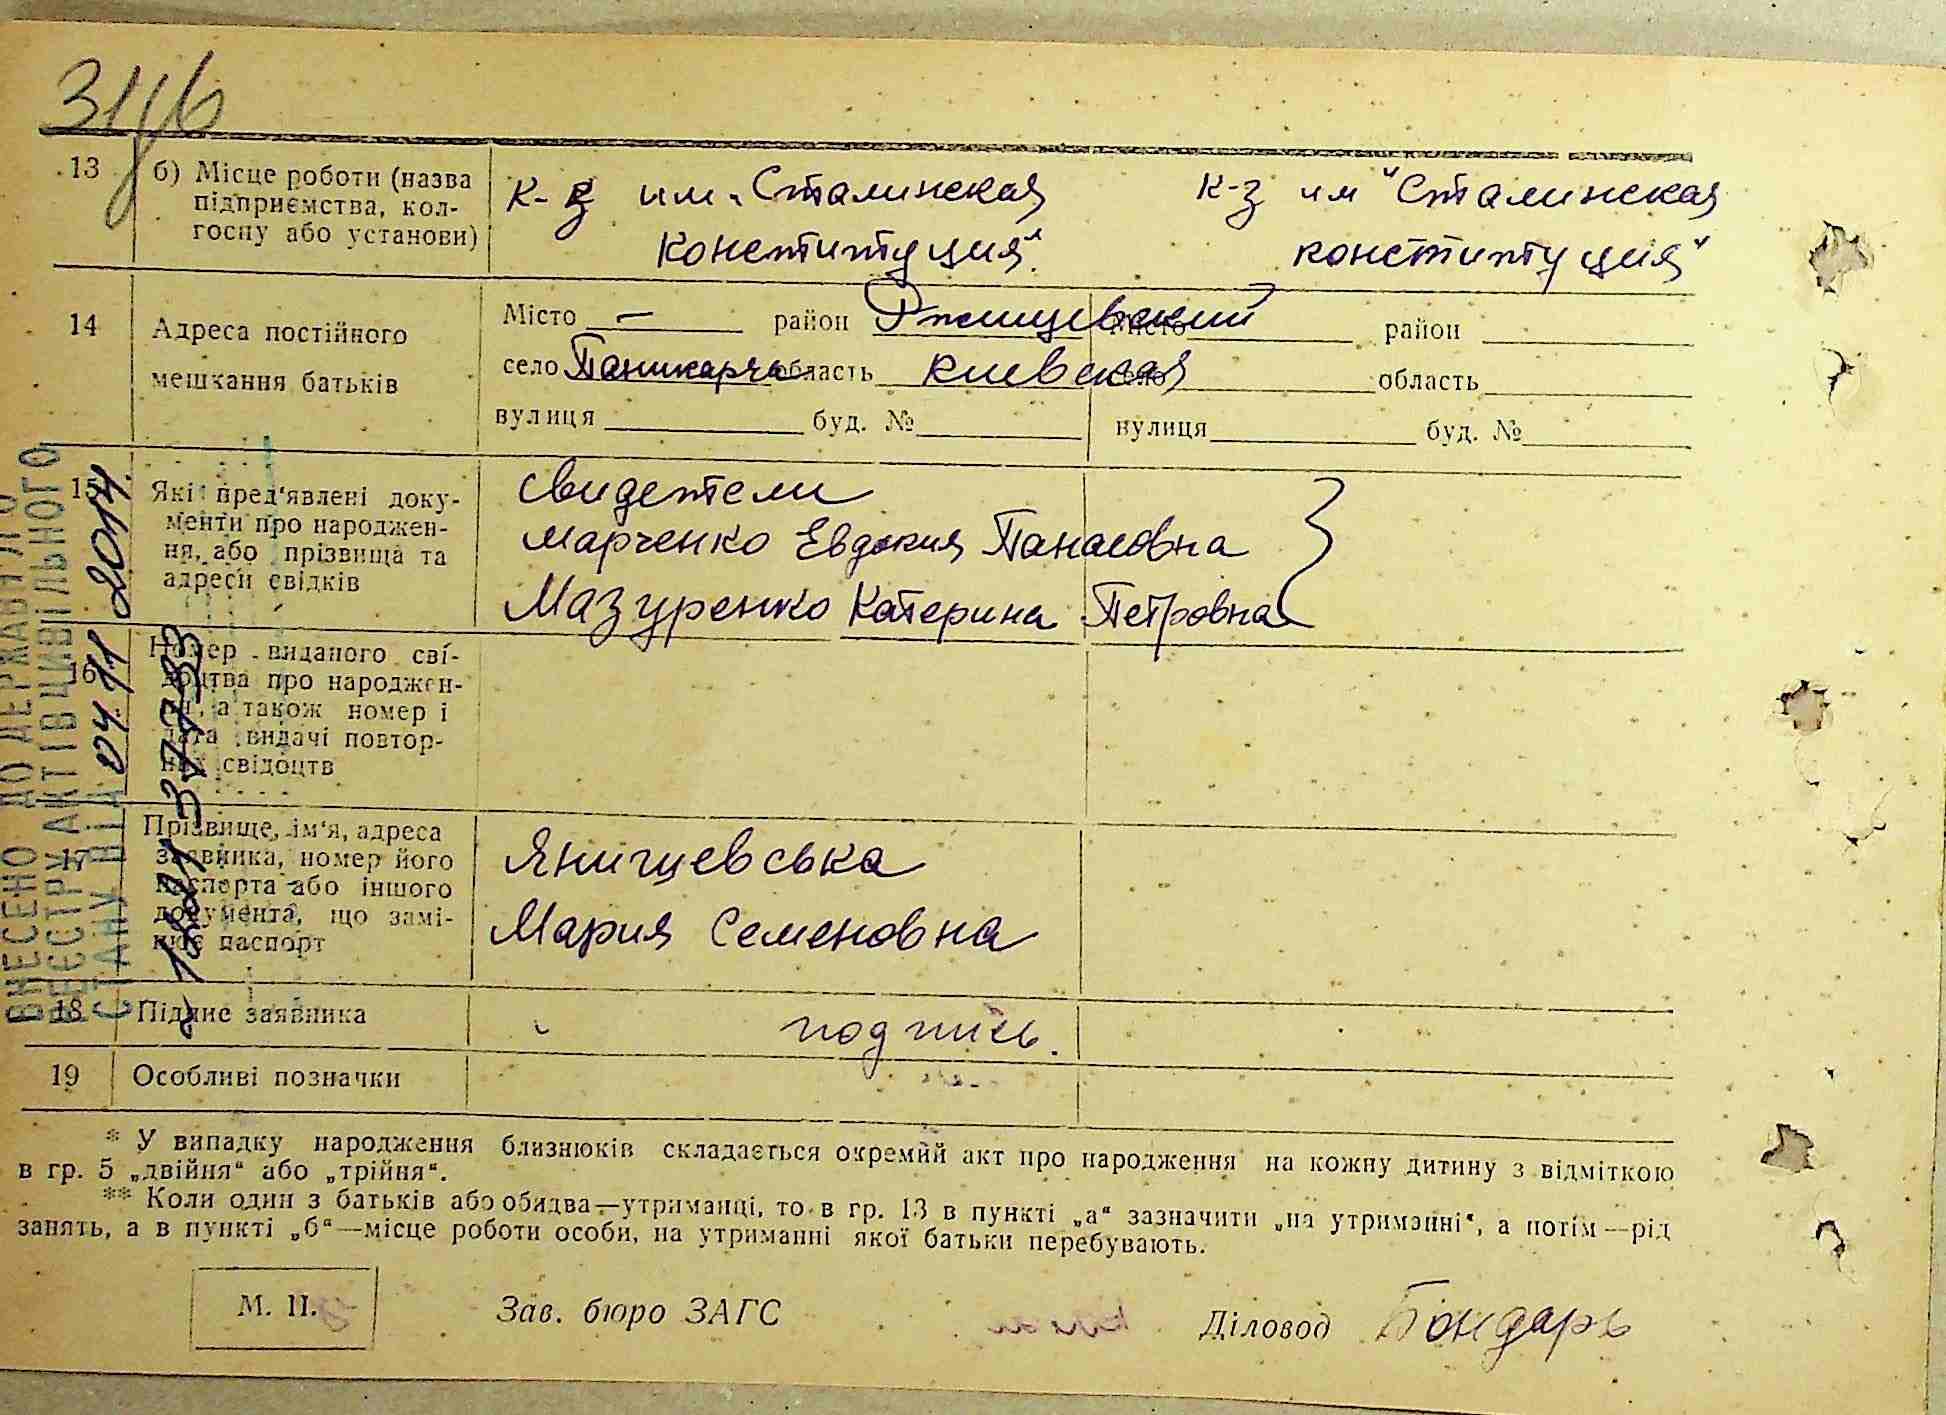 13 б) Місце роботи (назва підприємства, колгоспу або установи)
к-з им. „Сталинская
Конституция"
к-з им "Сталинская
конституция"
14 Адреса постійного мешкання батьків
Місто — район Ржищевский Місто район
село Паникарча область Киевская село область
вулиця буд. № вулиця буд. №
15 Які пред'явлені документи про народження, або прізвища та адреси свідків
свидетели
Марченко Евдокия Панасовна
Мазуренко Катерина Петровна
16 Номер виданого свідоцтва про народження, а також номер і дата видачі повторних свідоцтв
17 Прізвище, ім'я, адреса заявника, номер його паспорта або іншого документа, що замінює паспорт
Янищевська
Мария Семеновна
18 Підпис заявника
подпись.
19 Особливі позначки
* У випадку народження близнюків складається окремий акт про народження на кожну дитину з відміткою
в гр. 5 „двійня" або „трійня".
** Коли один з батьків або обидва—утриманці, то в гр. 13 в пункті „а" зазначити „на утриманні", а потім—рід
занять, а в пункті „б"—місце роботи особи, на утриманні якої батьки перебувають.
М. П. Зав. бюро ЗАГС Діловод Бондарь
ВНЕСЕНО ДО ДЕРЖАВНОГО
РЕЄСТРУ АКТІВ ЦИВІЛЬНОГО
СТАНУ ВІД 04 11 2014